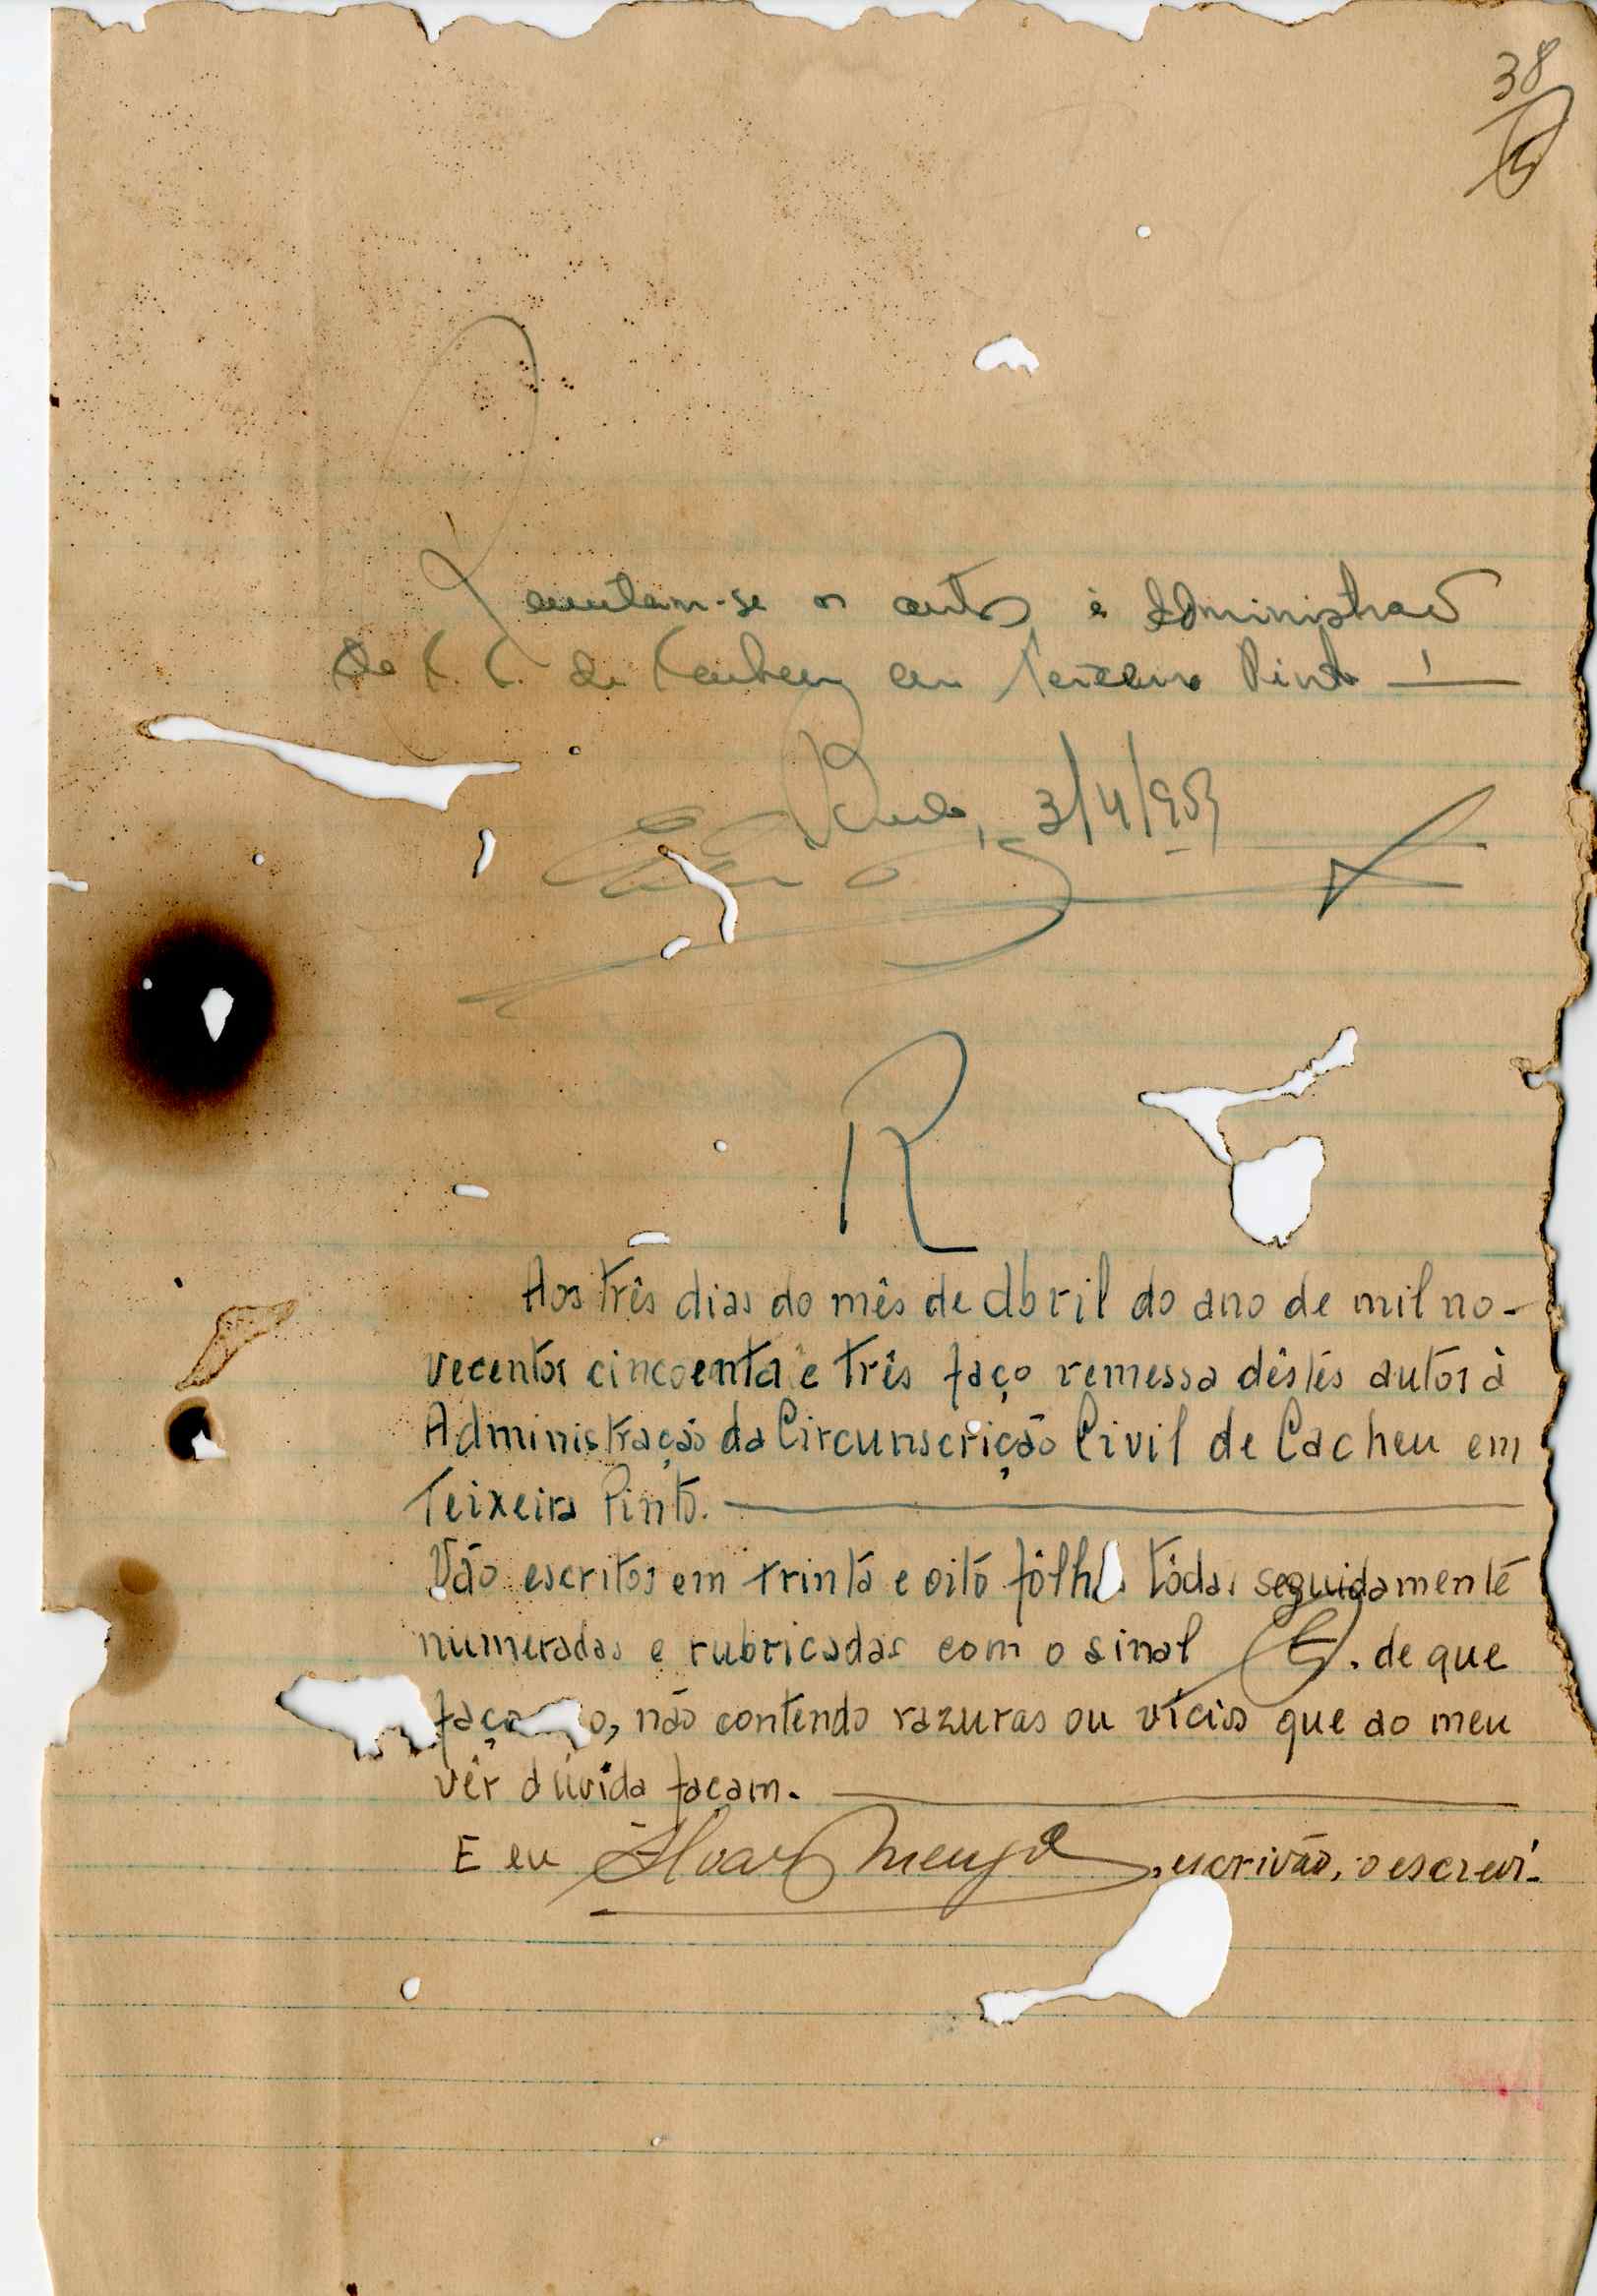 38
Remetam-se os autos à Administração
da C. C. de Cacheu em Teixeira Pinto
3/4/953
R
Aos três dias do mês de Abril do ano de mil no-
vecentos cincoenta e três faço remessa dêstes autos à
Administração da Circunscrição Civil de Cacheu em
Teixeira Pinto.
Vão escritos em trinta e oito fôlh tôdas seguidamente
numeradas e rubricadas com o sinal de que
faço o, não contendo razuras ou vícios que ao meu
vêr dúvida façam.
E eu Alvaro , escrivão, o escrevi.